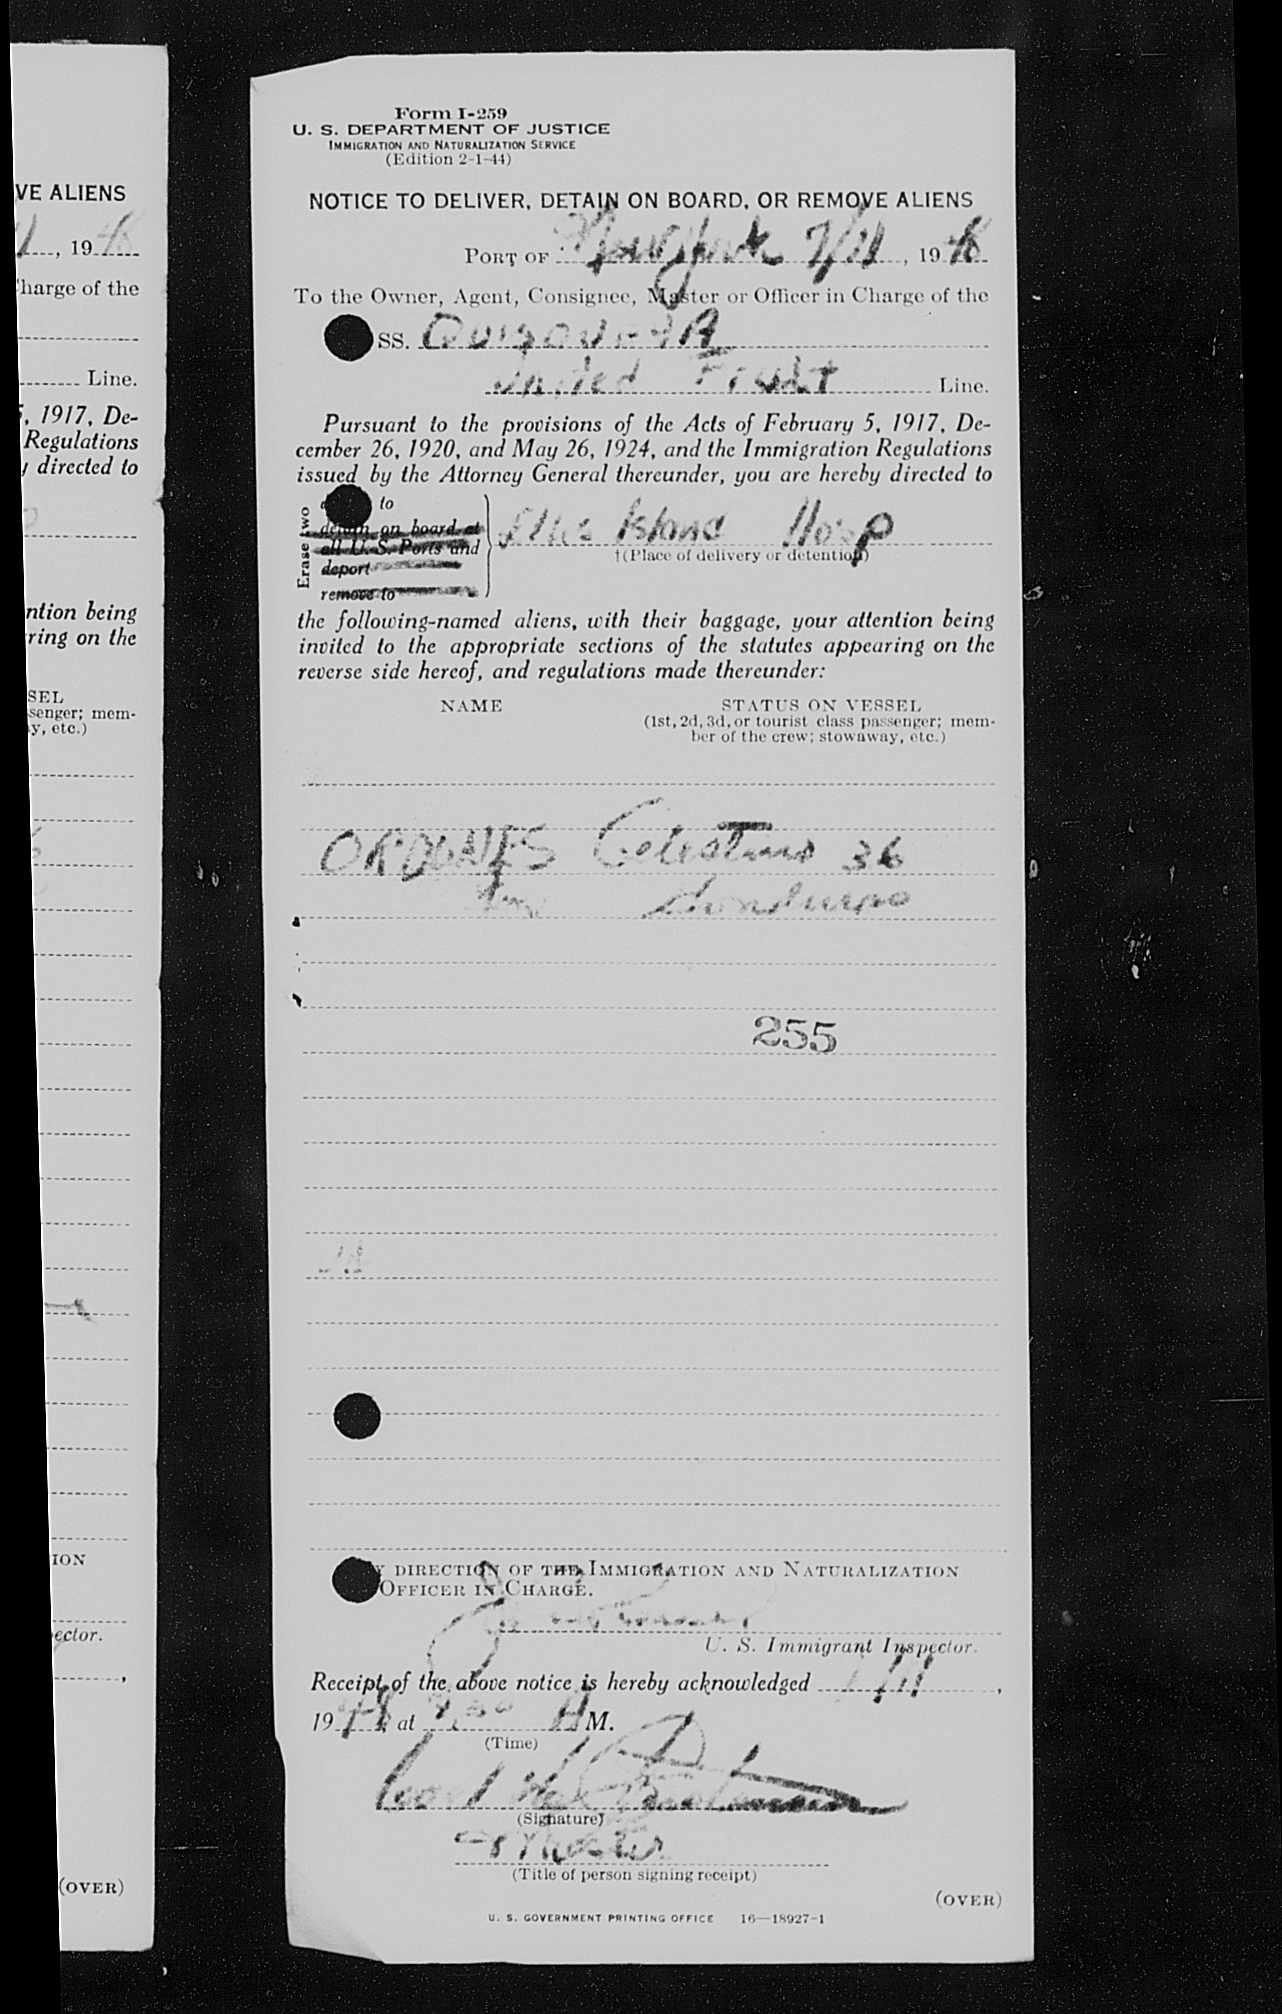 VE ALIENS
, 19 48
Charge of the
Line.
5, 1917, De-
Regulations
y directed to
ntion being
ring on the
SEL
senger; mem-
y, etc.)
ION
ector.
(OVER)
Form I-259
U. S. DEPARTMENT OF JUSTICE
IMMIGRATION AND NATURALIZATION SERVICE
(Edition 2-1-44)
NOTICE TO DELIVER, DETAIN ON BOARD, OR REMOVE ALIENS
PORT OF New York 7/11, 19 48
To the Owner, Agent, Consignee, Master or Officer in Charge of the
SS.
United Fruit Line.
Pursuant to the provisions of the Acts of February 5, 1917, De-
cember 26, 1920, and May 26, 1924, and the Immigration Regulations
issued by the Attorney General thereunder, you are hereby directed to
Erase two
to
detain on board at
all U. S. Ports and
deport
remove to
Ellis Island Hosp
†(Place of delivery or detention)
the following-named aliens, with their baggage, your attention being
invited to the appropriate sections of the statutes appearing on the
reverse side hereof, and regulations made thereunder:
NAME STATUS ON VESSEL
(1st, 2d, 3d, or tourist class passenger; mem-
ber of the crew; stowaway, etc.)
ORDONES Celestino 36
Honduras
255
Y DIRECTION OF THE IMMIGRATION AND NATURALIZATION
OFFICER IN CHARGE.
U. S. Immigrant Inspector.
Receipt of the above notice is hereby acknowledged 7/11,
1948, at M.
(Time)
(Signature)
Master
(Title of person signing receipt)
(OVER)
U. S. GOVERNMENT PRINTING OFFICE 16—18927-1